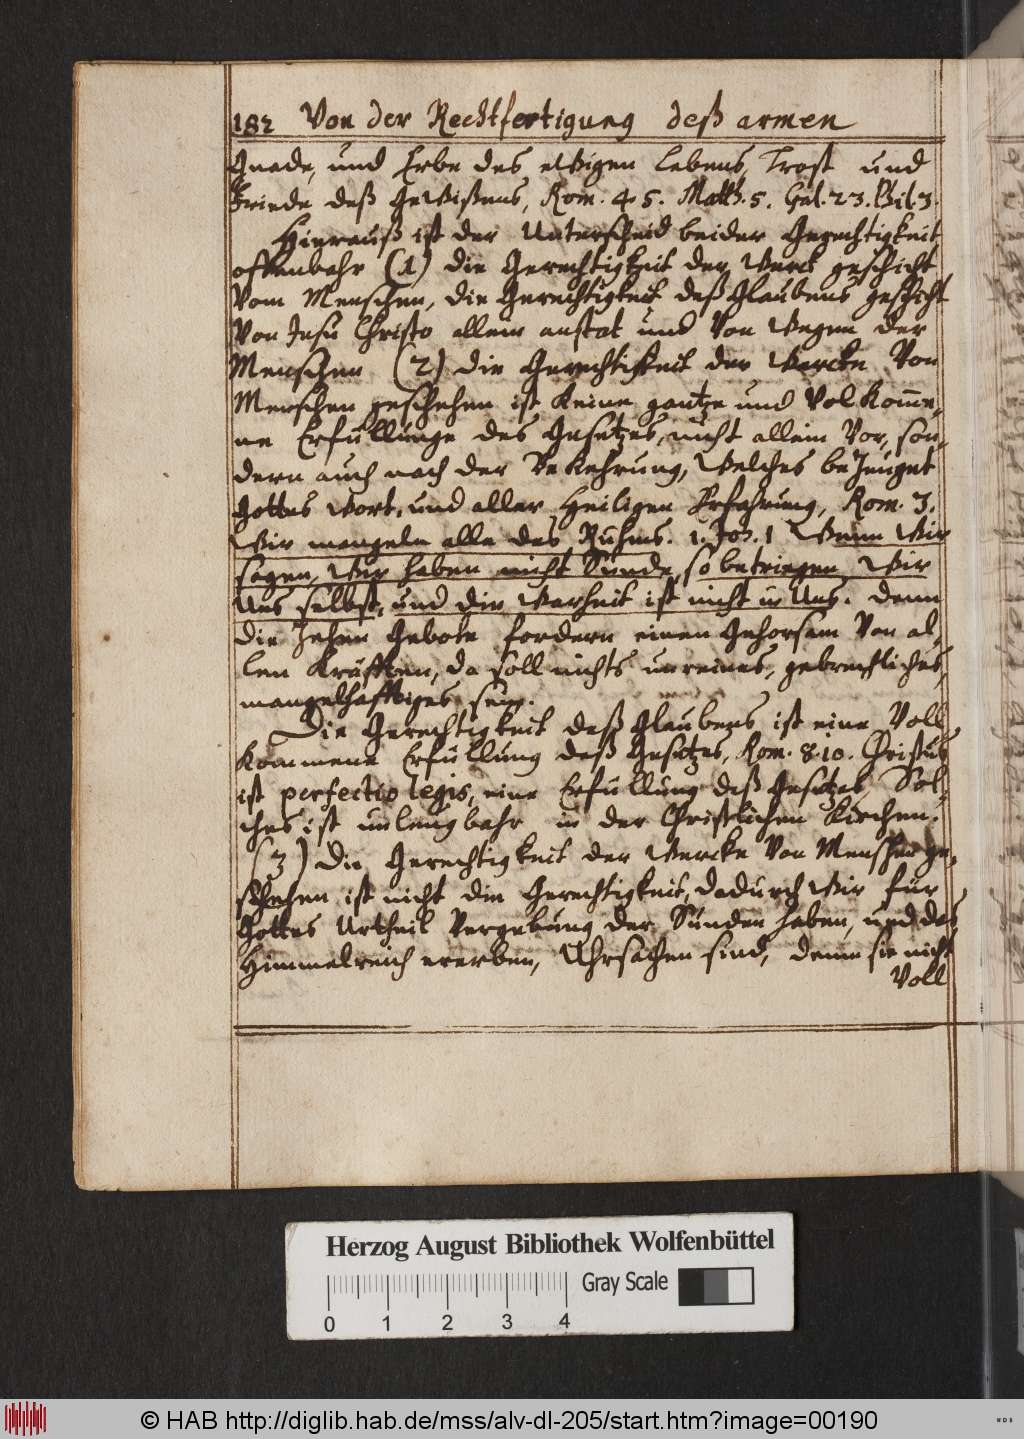 182 Von der Rechtfertigung deß armen
Gnade, und Erbe des ewigen lebens, Trost und
Friede deß Gewißens, Rom. 4 5. Matth. 5. Gal. 2 3. Phil. 3.
Hierauß ist der Unterscheid beider Gerechtigkeit
offenbahr (1) die Gerechtigkeit der Werck geschicht
Vom Menschen, die Gerechtigkeit deß Glaubens geschicht
Von Jesu Christo allein anstat und Von Wegen der
Menschen (2) die Gerechtigkeit der Wercke Von
Menschen geschehen ist Keine gantze und Volkom̄e,
ne Erfüllunge des Gesetzes, nicht allein Vor, son,
dern auch nach der Bekehrung, Welches beZeuget
Gottes Wort, und aller Heiligen Erfahrung, Rom. 3.
Wir mangeln alle des Ruhms. 1. Joh. 1 Wenn Wir
sagen, Wir haben nicht Sünde, so betriegen Wir
Uns selbst, und die Warheit ist nicht in Uns. denn
die Zehen Gebote fordern einen Gehorsam Von al,
len Kräfften, da soll nichts unreines, gebrechliches,
mangelhafftiges sein.
Die Gerechtigkeit deß Glaubens ist eine Voll
Kommene Erfüllung deß Gesetzes, Rom. 8. 10. Christus
ist perfectio legis, eine Erfüllung deß Gesetzes, Sol,
ches ist unleugbahr in der Christlichen Kirchen.
(3) Die Gerechtigkeit der Wercke Von Menschen ge,
schehen ist nicht die Gerechtigkeit, dadurch Wir für
Gottes Urtheil Vergebung der Sünden haben, und das
Himmelreich ererben, Uhrsachen sind, denn sie nicht
Voll
Herzog August Bibliothek Wolfenbüttel
Gray Scale
0 1 2 3 4
© HAB http://diglib.hab.de/mss/alv-dl-205/start.htm?image=00190